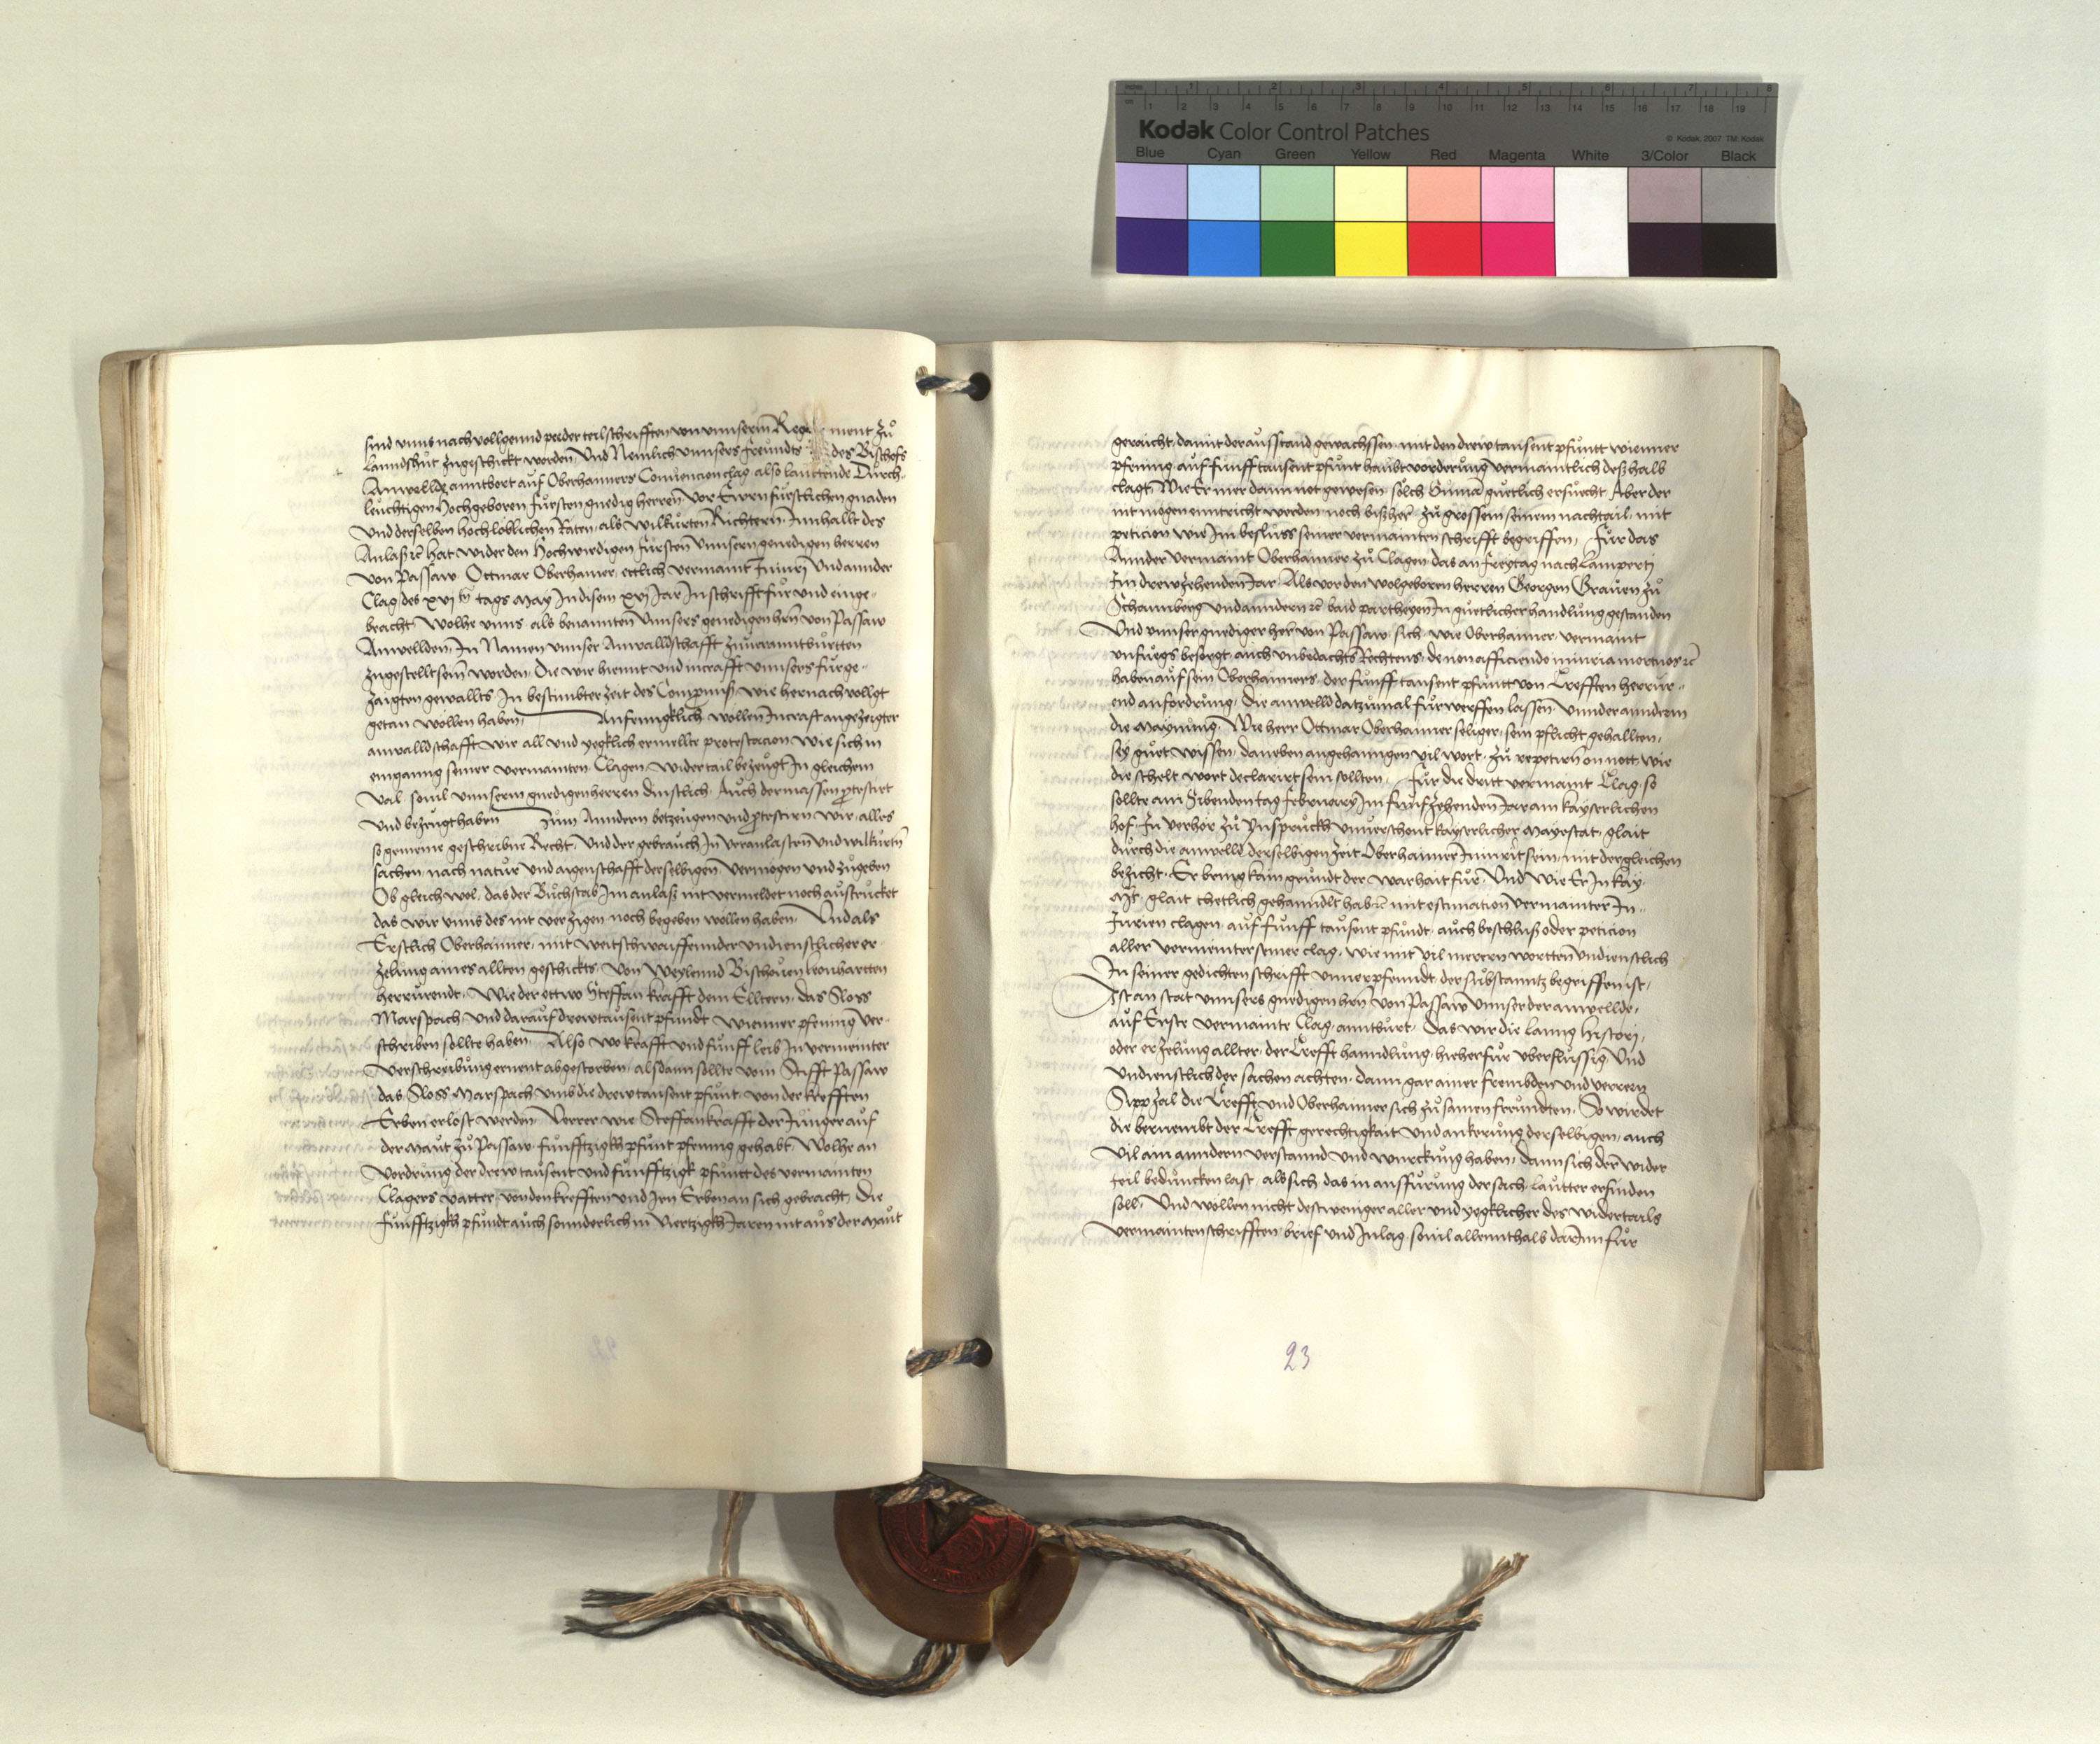 Kodak Color Control Patches
© Kodak, 2007 TM: Kodak
Blue Cyan Green Yellow Red Magenta White 3/Color Black
sind unns nach vollgennd peider teil schrifften von unnserm Rege ment zů
Lanndshůt zugeschickt worden, Und Nemlich unnsers freunndts des Bischofs
Anwellde anntbort auf Oberhaimers Convencionclag also lauttende Durch-
leuchtigen hochgeboren fursten gnedig herren Vor Ewrn furstlichen gnaden
Und derselben hochloblichen Räten, als wilkurten Richtern, Innhallt des
Anlaß rc hat wider den Hochwirdigen fursten Unnsern genedigen herren
von Passaw, Ottmar Oberhaimer, ettlich vermaint Iniurj Und annder
Clag des xvj tags May In disem xvj Jar In schrifft fur und einge-
bracht Wolhe unns als benannten Unnsers genedigen hern von Passaw
Anwellden, In Namen unnser Anwalldschafft zuverantburtten
zugestellt sein worden, Die wir hiemit und incrafft unnsers furge-
zaigten gewallts In bestimbter zeit des Compromiß wie hernach vollgt
getan wollen haben, Anfenngklich wollen Incraft angezeigter
anwalldschafft wir all und yegklich ermellte protestacion wie sich in
eingang seiner vermainten Clagen, widertail bezeugt In gleichem
Val sovil unnserm gnedigen herren dinstlich, Auch dermassen protestirt
und bezeugt haben Zum Anndern betzeugen und protestirn wir, alles
so gemeine geschribne Recht, Und der gebrauch In veranlasten und wilkurtn
sachen, nach natur und aigenschafft derselbigen, vermögen und zugeben
Ob gleich wol, das der Buchstab Im anlaß nit vermeldet noch austrucket
das wir unns des nit verzigen noch begeben wollen haben, Und als
Erstlich Oberhaimer, mit weitschwaiffennder undienstlicher er-
zelung aines allten geschichts, von Weylennd Bischoven Leonhartten
herrurendt, Wie der ettwo Steffan krafft dem Elltern, das Sloss
Marspach, und darauf drewtausent pfundt Wienner pfening ver-
schriben sollte haben, Also wo krafft und funff leib In vermeinter
Verschreibung ernent abgestorben, alsdann sollte vom Stifft Passaw
das Sloss Marspach umb die drewtausent pfunt, von der krefften
Erben erlöst werden, Verrer wie Steffan krafft der Junger auf
der Maut zu Passaw, funfftzigkh pfunt pfening gehabt, Wolhe an
Vordrung der drew tausent und funfftzigk pfuntt des vermainten
Clagers vatter, von den krefften und Iren Erben an sich gebracht, die
funfftzigkh pfundt auch sonnderlich in Viertzigkh Jaren nit aus der Maut
geraicht, damit der ausstand gewachssen, mit den drewtausent pfuntt wienner
pfening, auf funff tausent pfunt haubt vorderung vermaintlich deßhalb
clagt, Wie Er mer dann not gewesen, solch Suma guetlich ersuecht, Aber der
nit mögen enntricht werden, noch bißher, zu grossem seinem nachtail, mit
peticion wie Im besluss seiner vermainten schrifft begriffen, Fur das
Annder vermaint Oberhaimer zu Clagen, das an freytag nach Lamperti
Im drewzehenden Jar, Als vor den wolgeboren herren Georgen Graven zu
Schaunberg und anndern rc baid partheyen In guetlicher handlung gestanden
Und unnser gnediger her von Passaw, sich, wie Oberhaimer, vermaint
unfuegs besorgt, auch unbedachts Rechtens, de non afficiendo iniuria mortuos rc
haben auf sein Oberhaimers, der funff tausent pfuntt von Krefften herrur-
end anfordrung, die anwelld datzumal furwerffen lassen, unnder anndern
die Maynung, Wie herr Ottmar Oberhaimer seliger, sein pflicht gehallten,
sey guet wissen, daneben angehanngen vil wort, zu repetirn on nott, wie
die schelt wort declarirt sein sollten, Fur die dritt vermaint Clag, so
sollte am Sibenden tag february Im funfzehenden Jar am kayserlichen
hof, In verhör zu Ynspruckh unverschont kayserlicher Mayestat, glait
durch die anwelld derselbigen zeit Oberhaimer Iniurirt sein, mit dergleichen
bezicht, Er bring kain grundt der warhait fur, Und wie Er In kay.
Mt. glait thetlich gehanndlt hab rc mit estimation vermainter In-
Iurien clagen, auf funff tausent pfundt, auch beschluß oder peticion
aller vermeinter seiner clag, wie mit vil merern wortten undienstlich
In seiner gedichten schrifft unnverpfenndt, der substanntz begriffen ist,
Ist an stat unnsers gnedigen hern von Passaw unnser der anwellde,
auf Erste vermainte Clag, anntburt, Das wir die lanng histori,
oder erzelung allter, der Krefft hanndlung, hieher fur uberflussig Und
Undienstlich der sachen achten, dann gar ainer frembden und verrern
Sippzal die Krefft, und Oberhaimer sich zu samen freundten, So wirdet
die beruembt der Krefft gerechtigkait und ankerung derselbigen, auch
vil ain anndern verstannd und wurckung haben, dann sich der wider
teil beduncken last, als sich das in ausfurung der sach, lautter erfinden
soll, Und wollen nicht destweniger aller und yegklicher des widertails
vermainten schrifften brief und Inlag, sovil allennthalb darinn fur
23